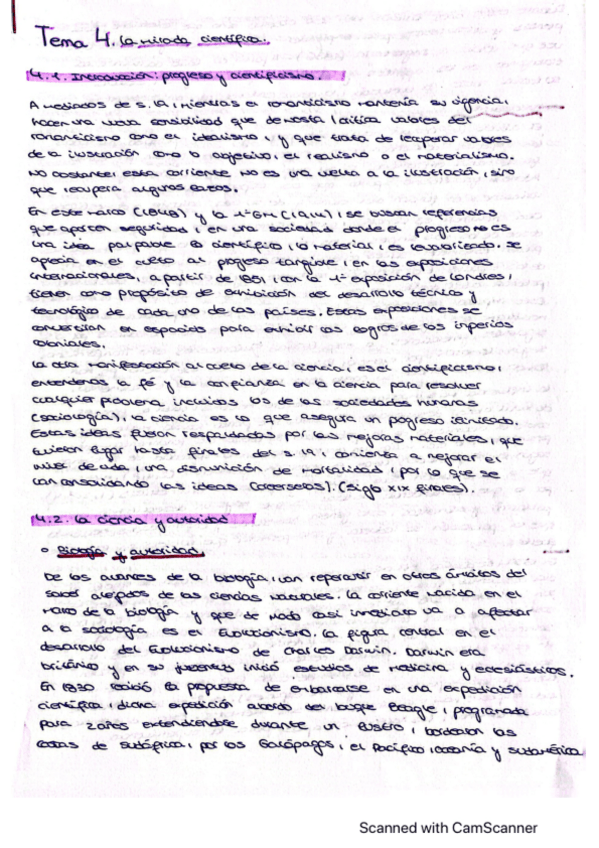 Tema 4. La mirada científica.
4.1. Introducción: progreso y cientificismo.
A mediados de s. 19, mientras el romanticismo mantenía su vigencia,
nacen una nueva sensibilidad que denosta/critica valores del
romanticismo como el idealismo, y que trata de recuperar valores
de la ilustración como lo objetivo, el realismo o el materialismo.
No obstante, esta corriente no es una vuelta a la ilustración, sino
que recupera algunos
En este marco (1848) y la 1ª GM (1914), se buscan referencias
que aporten seguridad, en una sociedad donde el progreso no es
una idea palpable lo científico, lo material, es lo valorizado. Se
aprecia en el culto al progreso tangible, en las exposiciones
internacionales, a partir de 1851, con la 1ª exposición de Londres,
tienen como propósito de exhibición del desarrollo técnico y
tecnológico de cada uno de los países. Estas exposiciones se
convertirán en espacios para exhibir los logros de los imperios
coloniales.
La otra manifestación al culto de la ciencia, es el cientificismo,
entendemos la fé y la confianza en la ciencia para resolver
cualquier problema incluidos los de las sociedades humanas
(sociología), la ciencia es lo que asegura un progreso ilimitado.
Estas ideas fueron respaldadas por las mejoras materiales, que
tuvieron lugar hasta finales del s. 19, comienza a mejorar el
nivel de vida, una disminución de mortalidad, por lo que se
van consolidando las ideas (siglo XIX finales).
4.2. La ciencia y autoridad
o Biología y autoridad.
De los avances de la biología, van repercutir en otros ámbitos del
saber alejados de las ciencias naturales. La corriente nacida en el
marco de la biología y que de modo casi inmediato va a afectar
a la sociología es el Evolucionismo. La figura central en el
desarrollo del Evolucionismo de Charles Darwin. Darwin era
británico y en su juventud inició estudios de medicina y eclesiásticos.
En 1830 recibió la propuesta de embarcarse en una expedición
científica, dicha expedición abordo del buque Beagle, programada
para 2 años extendiéndose durante un lustro, bordearon las
costas de Sudáfrica, por las Galápagos, el Pacífico, oceanía y sudamérica
Scanned with CamScanner